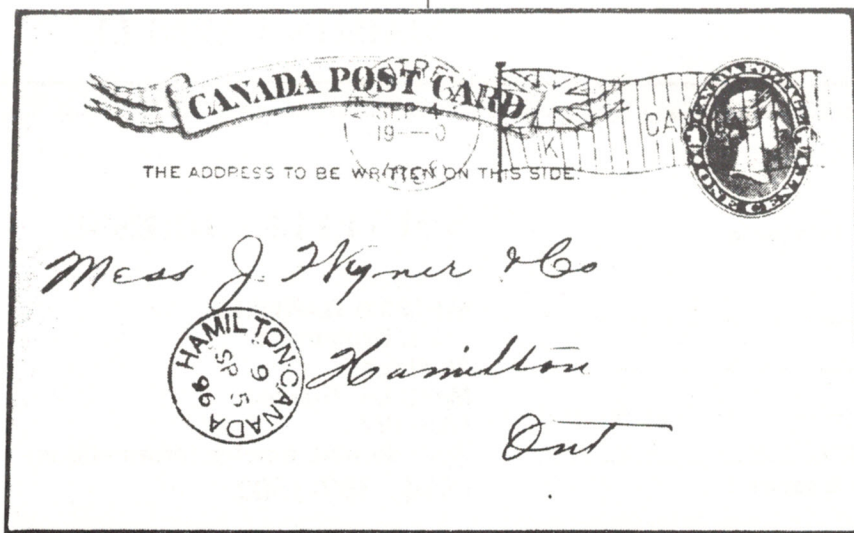 CANADA POST CARD
SEP 4
19—0
K
THE ADDRESS TO BE WRITTEN ON THIS SIDE.
ONE CENT
Mess J. Wyner & Co
HAMILTON·CANADA
9
SP 5
96
Hamilton
Ont